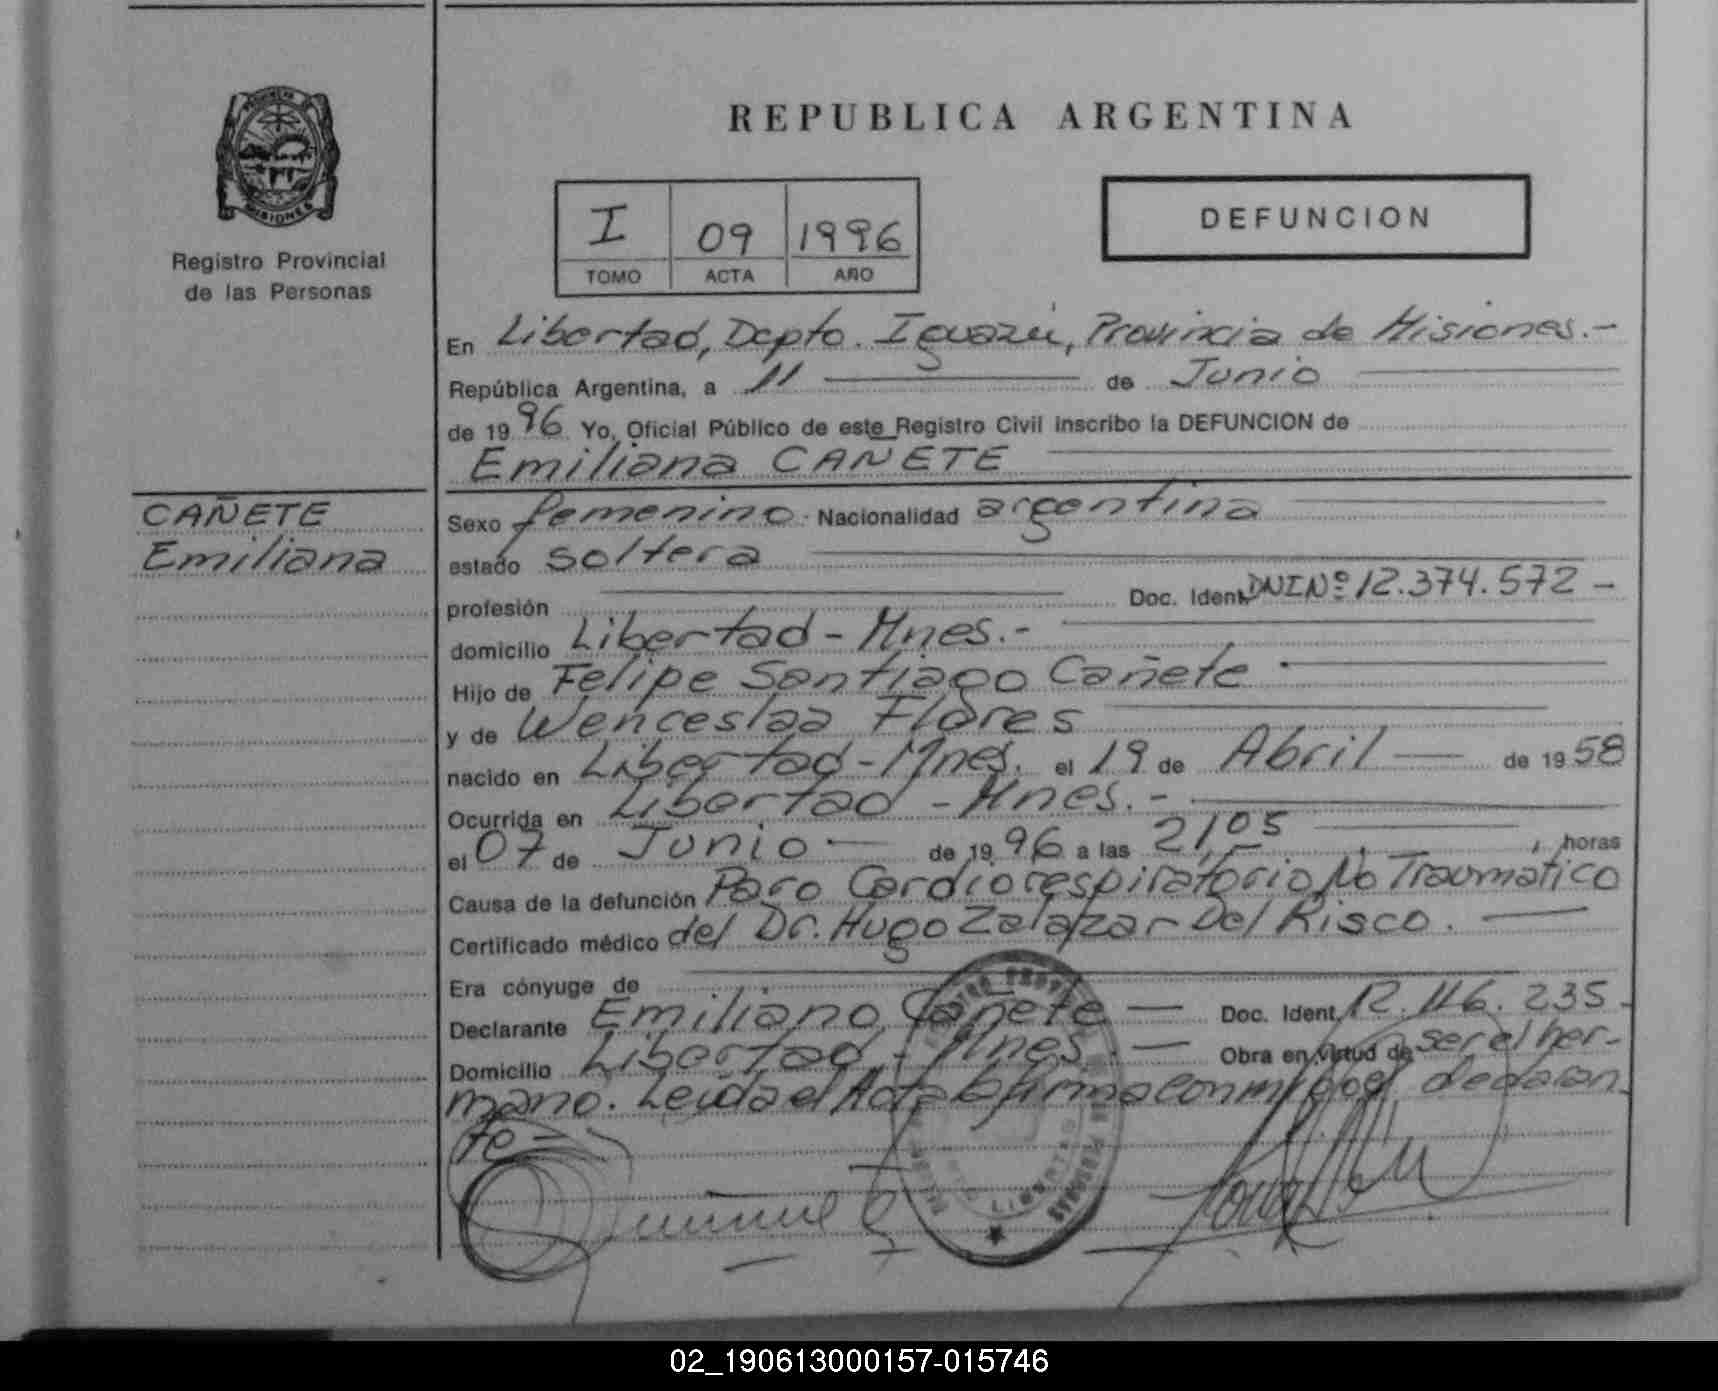 PROVINCIA DE
MISIONES
Registro Provincial
de las Personas
REPUBLICA ARGENTINA
I 09 1996
TOMO ACTA AÑO
DEFUNCION
En Libertad, Depto. Iguazú, Provincia de Misiones.-
República Argentina, a 11 de Junio
de 1996 Yo, Oficial Público de este Registro Civil inscribo la DEFUNCION de
Emiliana CAÑETE
CAÑETE
Emiliana
Sexo femenino Nacionalidad argentina
estado soltera
profesión Doc. Ident. DNI Nº 12.374.572 -
domicilio Libertad - Mnes.-
Hijo de Felipe Santiago Cañete
y de Wenceslaa Flores
nacido en Libertad - Mnes. el 19 de Abril de 1958
Ocurrida en Libertad - Mnes.-
el 07 de Junio de 1996 a las 21,05 horas
Causa de la defunción Paro Cardiorespiratorio No Traumático
Certificado médico del Dr. Hugo Zalazar Del Risco.
Era cónyuge de
Declarante Emiliano Cañete Doc. Ident. 12.116.235.
Domicilio Libertad - Mnes. Obra en virtud de ser el her-
mano. Leída el Acta la firma conmigo el declaran
te -
LIBERTAD
02_190613000157-015746